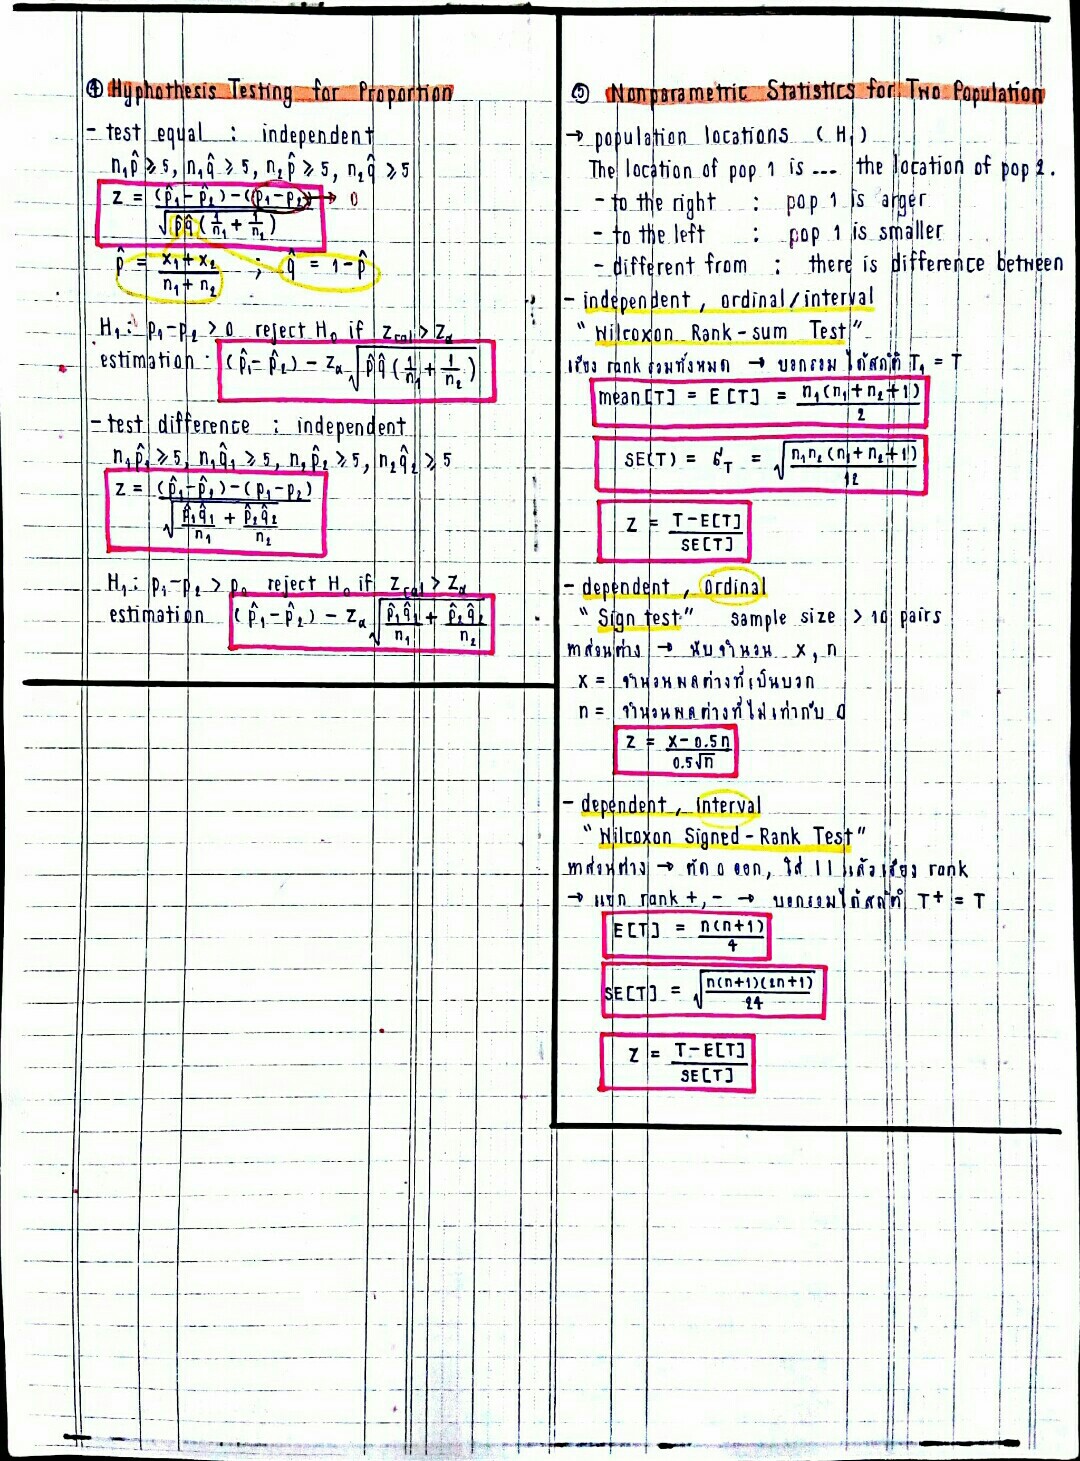 ④ Hyphothesis Testing for Proportion
- test equal : independent
n₁p̂ ≥ 5, n₁q̂ ≥ 5, n₂p̂ ≥ 5, n₂q̂ ≥ 5
z = ((p̂₁-p̂₂)-(p₁-p₂))/√(p̂q̂(1/n₁ + 1/n₂)) → 0
p̂ = (x₁+x₂)/(n₁+n₂) ; q̂ = 1-p̂
H₁: p₁-p₂ > 0 reject H₀ if z_cal > z_α
estimation : (p̂₁-p̂₂) - z_α √(p̂q̂(1/n₁ + 1/n₂))
- test difference : independent
n₁p̂₁ ≥ 5, n₁q̂₁ ≥ 5, n₂p̂₂ ≥ 5, n₂q̂₂ ≥ 5
z = ((p̂₁-p̂₂)-(p₁-p₂))/√(p̂₁q̂₁/n₁ + p̂₂q̂₂/n₂)
H₁: p₁-p₂ > p₀ reject H₀ if z_cal > z_α
estimation (p̂₁-p̂₂) - z_α √(p̂₁q̂₁/n₁ + p̂₂q̂₂/n₂)
⑤ Nonparametric Statistics for Two Population
→ population locations (H₁)
The location of pop 1 is ... the location of pop 2.
- to the right : pop 1 is arger
- to the left : pop 1 is smaller
- different from : there is difference between
- independent, ordinal/interval
"Wilcoxon Rank-sum Test"
เรียง rank รวมทั้งหมด → บวกรวม ได้สถิติ T₁ = T
mean[T] = E[T] = n₁(n₁+n₂+1)/2
SE(T) = σ_T = √(n₁n₂(n₁+n₂+1)/12)
z = (T-E[T])/SE[T]
- dependent, ordinal
"Sign test" sample size > 10 pairs
หาส่วนต่าง → นับจำนวน x, n
x = จำนวนผลต่างที่เป็นบวก
n = จำนวนผลต่างที่ไม่เท่ากับ 0
z = (x-0.5n)/(0.5√n)
- dependent, interval
"Wilcoxon Signed-Rank Test"
หาส่วนต่าง → ตัด 0 ออก, ใส่ | | แล้วเรียง rank
→ แยก rank +, - → บวกรวมได้สถิติ T⁺ = T
E[T] = n(n+1)/4
SE[T] = √(n(n+1)(2n+1)/24)
z = (T-E[T])/SE[T]